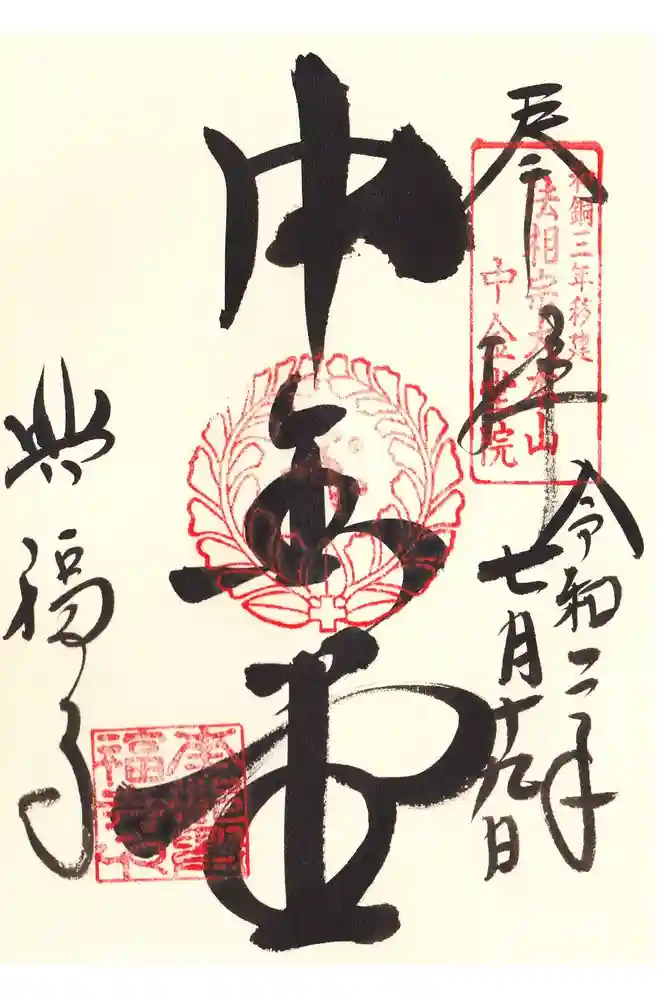 奉拝
令和二年
七月十九日
和銅三年移建
法相宗大本山
中金堂院
中金堂
興福寺